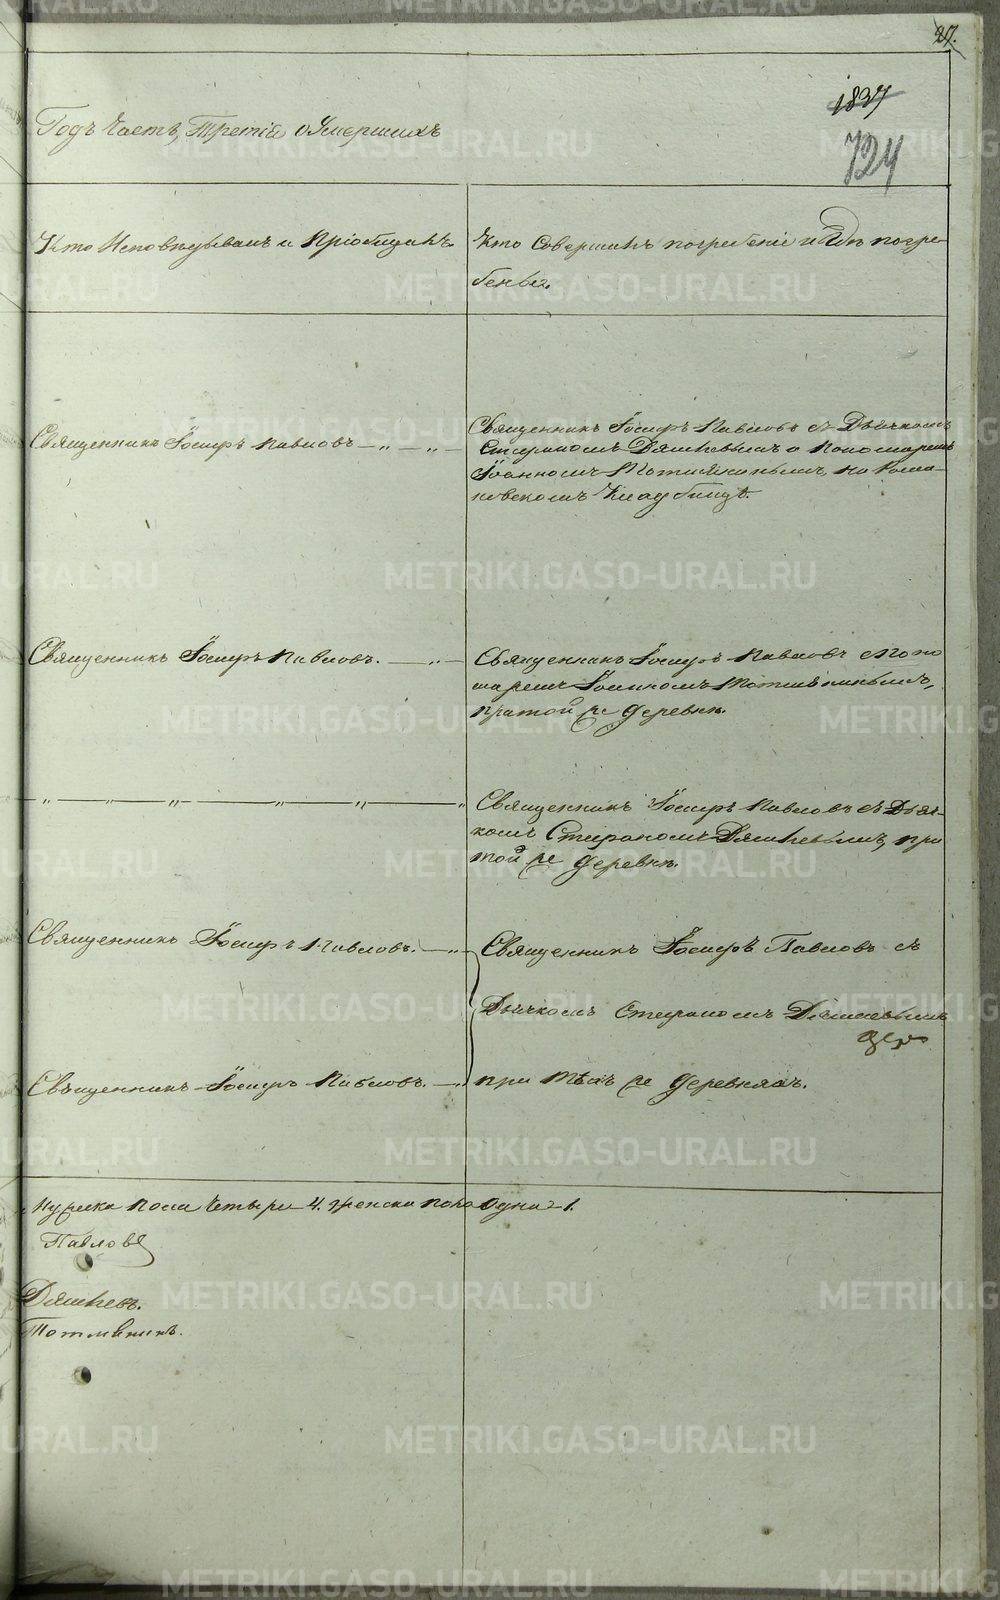 27.
1837
724
Годъ Часть Третія о Умершихъ
Кто Исповѣдывалъ и Пріобщалъ.
Кто Совершалъ погребеніе и Гдѣ погре-
бены.
Священникъ Іосифъ Павловъ — „ — „ —
Священникъ Іосифъ Павловъ съ Дьячкомъ
Стефаномъ Дяшевымъ и Пономаремъ
Іоанномъ на Рома-
новскомъ Кладбищѣ.
Священникъ Іосифъ Павловъ. — „ —
Священникъ Іосифъ Павловъ с Поно
маремъ Іоанномъ
при той же деревнѣ.
„ — „ — „ — „ — „ — „
Священникъ Іосифъ Павловъ съ Дьяч-
комъ Стефаномъ Дяшевымъ, при
той же деревнѣ.
Священникъ Іосифъ Павловъ. — „
Священникъ Іосифъ Павловъ съ
Дьячкомъ Стефаномъ Дяшевымъ
Священникъ Іосифъ Павловъ. — „
при тѣхъ же деревняхъ.
Мужска пола Четыре 4. женска пола одна 1.
Павловъ
Дяшевъ.
METRIKI.GASO-URAL.RU